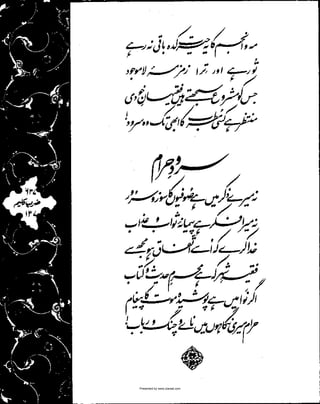 مہ و انجم کا یہ حیرت کدہ باقی نہ رہے
تو رہے اور ترا زمزمۂ لا موجود
جس کو مشروع سمجھتے ہیں فقیہانِ خودی
منتظر ہے کسی مطرب کا ابھی تک وہ سرود!
سرودِ حرام
نہ میرے ذکر میں ہے صوفیوں کا سوز و سرور
نہ میرا فکر ہے پیمانۂ ثواب و عذاب
خدا کرے کہ اسے اتفاق ہو مجھ سے
فقیہِ شہر کہ ہے محرمِ حدیث و کتاب
اگر نوا میں ہے پوشیدہ موت کا پیغام
حرام میری نگاہوں میں ناے و چنگ و رباب!
ضربِ کلیم
Presented by www.ziaraat.com